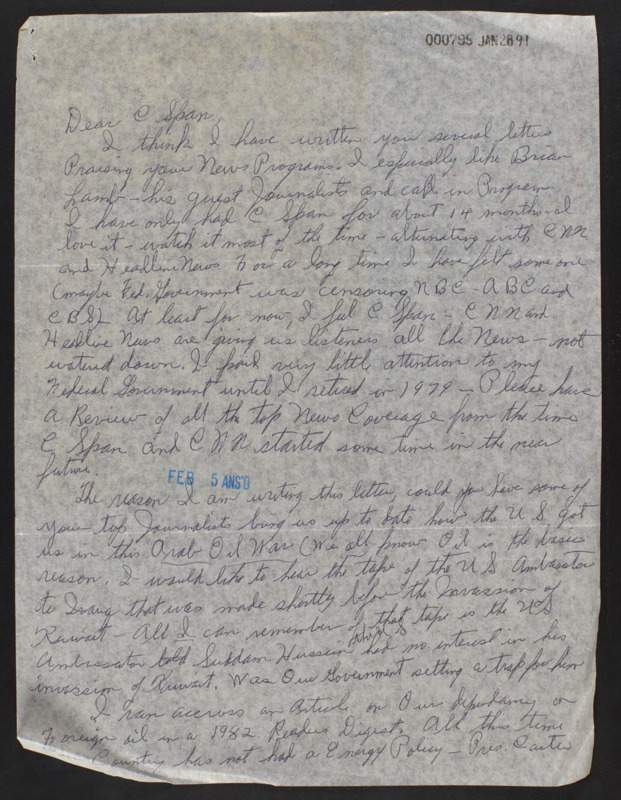 000799 JAN 28 91
Dear C Span,
I think I have written you several letters
Praising your News Programs. I especially like Brian
Lamb - his guest Journalists and call in Program
I have only had C Span for about 14 months - I
love it - watch it most of the time - alternating with CNN
and Headline News For a long time I have felt some one
(maybe Fed. Government was Censoring NBC - ABC and
CBS). At least for now, I feel C Span - CNN and
Headline News are giving us listeners all the News - not
watered down. I paid very little attention to my
Federal Government until I retired in 1979 - Please have
a Review of all the top News Coverage from the time
C Span and CNN started some time in the near
future.
FEB 5 ANS'D
The reason I am writing this letter, could you have some of
your top Journalists bring us up to date how the U S got
us in this Arab Oil War (We all know Oil is the basic
reason. I would like to hear the tape of the U S Ambassator
to Iraug that was made shortly before the Invasion of
Kuwait - All I can remember of that tape is the US
Ambassator told Suddam Hussein had no interest in his
invasion of Kuwait. Was Our Government setting a trap for him
I ran accross an Article on Our dependancy on
Foreign oil in a 1982 Readers Digest. All this time
Country has not had a Energy Policy - Pres. Carter